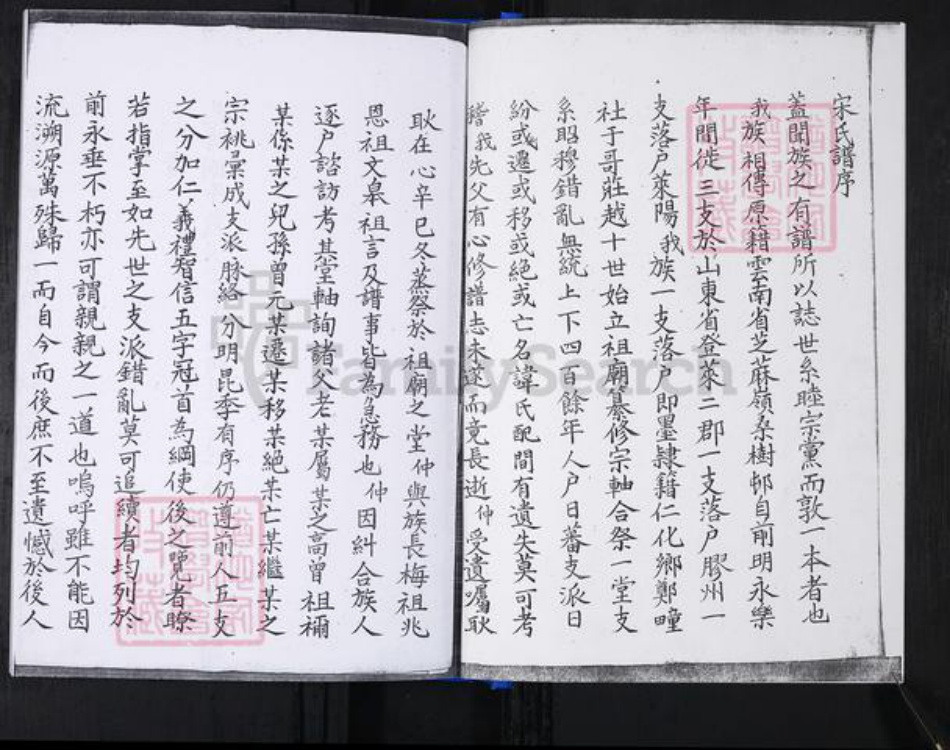 宋氏譜序
蓋聞族之有譜所以誌世系睦宗黨而敦一本者也
我族相傳原籍雲南省芝蔴嶺桑樹邨自前明永樂
年間徙三支於山東省登萊二郡一支落户膠州一
支落户萊陽我族一支落户即墨隸籍仁化鄉鄭疃
社于哥莊越十世始立祖廟纂修宗軸合祭一堂支
系昭穆錯亂無統上下四百餘年人户日蕃支派日
紛或遷或移或絕或亡名諱氏配間有遺失莫可考
稽我先父有心修譜志未遂而竟長逝仲受遺囑耿
耿在心辛巳冬蒸祭於祖廟之堂仲與族長梅祖兆
恩祖文皋祖言及譜事皆為急務也仲因糾合族人
逐户諮訪考其堂軸詢諸父老某屬某之高曾祖禰
某係某之兒孫曾元某遷某移某絕某亡某繼某之
宗祧彙成支派脉絡分明昆季有序仍遵前人五支
之分加仁義禮智信五字冠首為綱使後之覽者瞭
若指掌至如先世之支派錯亂莫可追續者均列於
前永垂不朽亦可謂親親之一道也嗚呼雖不能因
流溯源萬殊歸一而自今而後庶不至遺憾於後人
FamilySearch